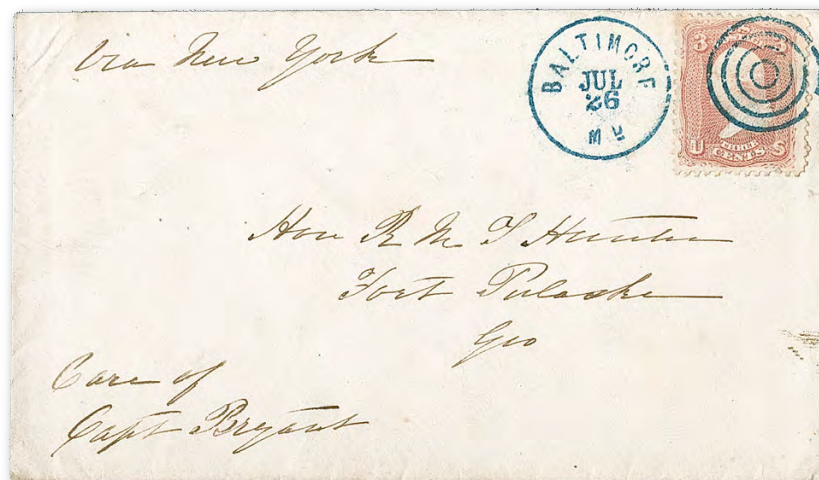 Via New York
BALTIMORE
JUL
26
Md
3
U S
THREE
CENTS
Hon R M T Hunter
Fort Pulaske
Geo
Care of
Capt Bryant